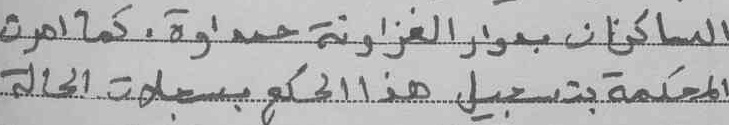 الساكنان بدوار الغزاونة حمداوة. كما امرت
المحكمة بتسجيل هذا الحكم بسجلات الحالة